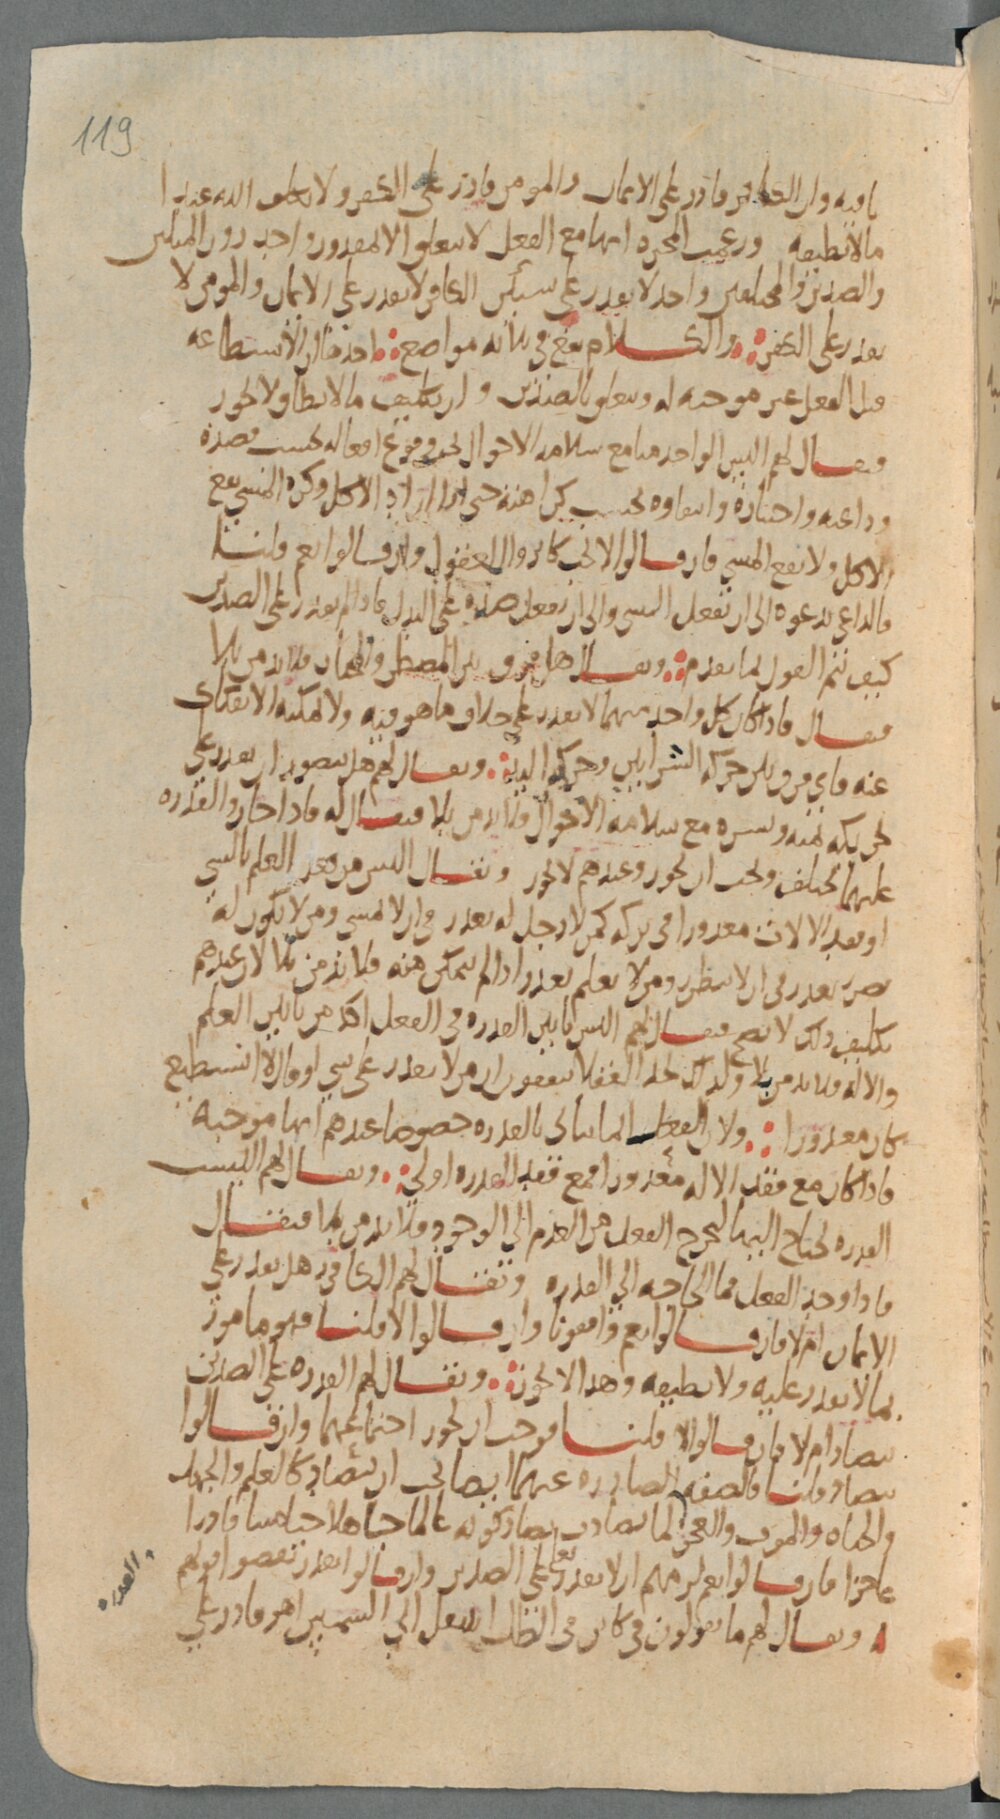 119
باقيه وان الكافر قادر على الايمان والمومن قادر على الكفر ولا يكلف الله عبدا
ما لا يطيقه وزعمت المجبره انها مع الفعل لا يتعلق الا بمقدور واحد دون المثلين
والضدين والمختلفين واحد لا يقدر على شيئين الكافر لا يقدر على الايمان والمومن لا
يقدر على الكفر والكلام يقع في ثلاثه مواضع احدها ان الاستطاعه
قبل الفعل غير موجبه له وتتعلق بالضدين وان تكليف ما لا يطاق لا يجوز
ويقال لهم اليس الواحد منا مع سلامه الاحوال يجب وقوع افعاله بحسب قصده
وداعيه واختياره وانتفاوه بحسب كراهته حتى اذا اراد الاكل وكره المشي يقع
الاكل ولا يقع المشي فان قالوا لا لا كابروا العقول وان قالوا نعم قلنا
فالداعي يدعوه الى ان يفعل الشي والى ان يفعل ضده على البدل فاذا لم يقدر على الضدين
كيف يتم القول بما تقدم ويقال هل فرق بين المضطر والمختار فلا بد من بلا
فيقال فاذا كان كل واحد منهما لا يقدر على خلاف ما هو فيه ولا يمكنه الانفكاك
عنه فاي فرق بين حركه الشرايين وحركه اليد ويقال لهم هل يتصور ان يقدر على
تحريكه يمنه ويسره مع سلامه الاحوال فلا بد من بلا فيقال له فاذا جاز والقدره
عليهما تختلف وجب ان يجوز وعندهم لا يجوز ويقال اليس من فقد العلم بالشي
او بعض الالات معذورا في تركه كمن لا رجل له يعذر في ان لا يمشي ومن لا يكون له
بصر يعذر في ان لا ينظر ومن لا يعلم يعذر اذا لم يتمكن منه فلا بد من بلا لان عندهم
تكليف ذلك لا يصح فيقال لهم اليس تاثير القدره في الفعل اكد من تاثير العلم
والاله فلا بد من بلا ولذلك تجد العقلا يتفقون ان من لا يقدر على شي او قال لا استطيع
كان معذورا ولان الفعل انما يتاتى بالقدره خصوصا عندهم انها موجبه
فاذا كان مع فقد الاله معذورا فمع فقد القدره اولى ويقال لهم اليست
القدره يحتاج اليها ليخرج الفعل من العدم الى الوجود فلا بد من بلا فيقال
فاذا وجد الفعل فما الحاجه الى القدره ويقال لهم الكافر هل يقدر على
الايمان ام لا فان قالوا نعم وافقونا وان قالوا لا قلنا فهو مامور
بما لا يقدر عليه ولا يطيقه وهذا لا يجوز ويقال لهم القدره على الضدين
يتضاد ام لا فان قالوا لا قلنا فوجب ان يجوز اجتماعهما وان قالوا
يتضاد قلنا فالصفه الصادره عنهما ايضا يجب ان يتضاد كالعلم والجهل
والحياه والموت والعجز لما تضادت يضاد كونه عالما جاهلا حيا ميتا قادرا
عاجزا فان قالوا نعم لزمهم ان لا يقدر تعالى على الضدين وان قالوا يقدر نقضوا قولهم
ويقال لهم ما تقولون في كاين في الظل انتقل الى الشمس اهو قادر على
القدره